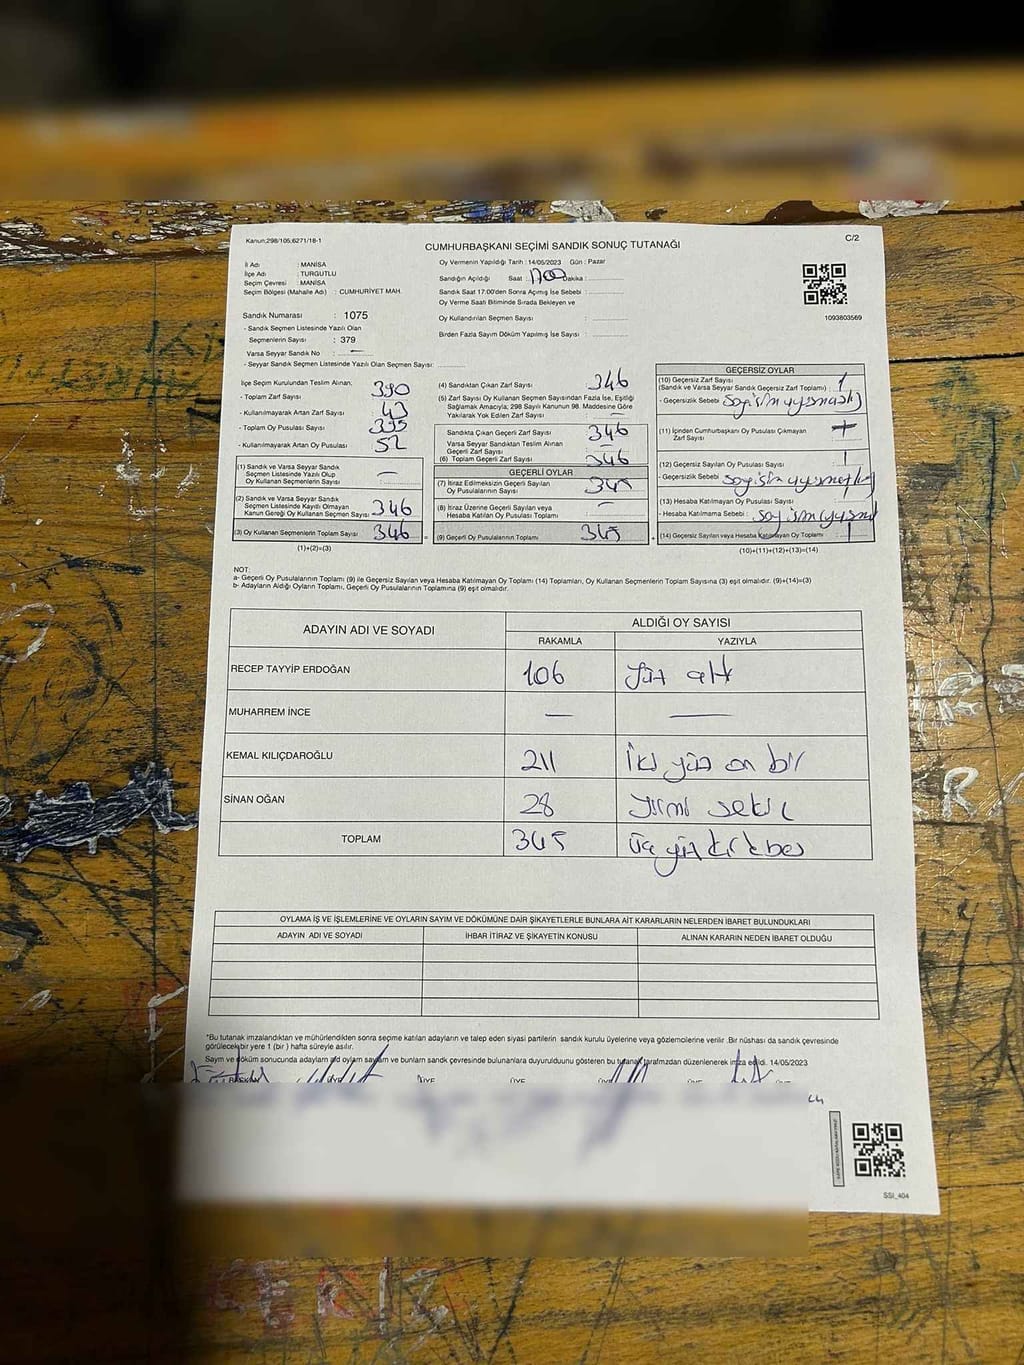 Kanun;298/105;6271/18-1
CUMHURBAŞKANI SEÇİMİ SANDIK SONUÇ TUTANAĞI
C/2
İl Adı : MANİSA
İlçe Adı : TURGUTLU
Seçim Çevresi : MANİSA
Seçim Bölgesi (Mahalle Adı) : CUMHURİYET MAH.
Sandık Numarası : 1075
- Sandık Seçmen Listesinde Yazılı Olan
Seçmenlerin Sayısı : 379
Varsa Seyyar Sandık No : —
- Seyyar Sandık Seçmen Listesinde Yazılı Olan Seçmen Sayısı:
Oy Vermenin Yapıldığı Tarih : 14/05/2023 Gün : Pazar
Sandığın Açıldığı Saat : 1700 Dakika :
Sandık Saat 17:00'den Sonra Açımış İse Sebebi :
Oy Verme Saati Bitiminde Sırada Bekleyen ve
Oy Kullandırılan Seçmen Sayısı :
Birden Fazla Sayım Döküm Yapılmış İse Sayısı :
1093803569
İlçe Seçim Kurulundan Teslim Alınan;
- Toplam Zarf Sayısı 390
- Kullanılmayarak Artan Zarf Sayısı : 43
- Toplam Oy Pusulası Sayısı 395
- Kullanılmayarak Artan Oy Pusulası 52
(1) Sandık ve Varsa Seyyar Sandık
Seçmen Listesinde Yazılı Olup
Oy Kullanan Seçmenlerin Sayısı : —
(2) Sandık ve Varsa Seyyar Sandık
Seçmen Listesinde Kayıtlı Olmayan
Kanun Gereği Oy Kullanan Seçmen Sayısı 346
(3) Oy Kullanan Seçmenlerin Toplam Sayısı 346 =
(1)+(2)=(3)
(4) Sandıktan Çıkan Zarf Sayısı 346
(5) Zarf Sayısı Oy Kullanan Seçmen Sayısından Fazla İse, Eşitliği
Sağlamak Amacıyla; 298 Sayılı Kanunun 98. Maddesine Göre
Yakılarak Yok Edilen Zarf Sayısı —
Sandıkta Çıkan Geçerli Zarf Sayısı 346
Varsa Seyyar Sandıktan Teslim Alınan
Geçerli Zarf Sayısı —
(6) Toplam Geçerli Zarf Sayısı 346
GEÇERLİ OYLAR
(7) İtiraz Edilmeksizin Geçerli Sayılan
Oy Pusulalarının Sayısı 345
(8) İtiraz Üzerine Geçerli Sayılan veya
Hesaba Katılan Oy Pusulası Toplamı —
(9) Geçerli Oy Pusulalarının Toplamı 345 +
GEÇERSİZ OYLAR
(10) Geçersiz Zarf Sayısı
(Sandık ve Varsa Seyyar Sandık Geçersiz Zarf Toplamı) : 1
- Geçersizlik Sebebi :
(11) İçinden Cumhurbaşkanı Oy Pusulası Çıkmayan
Zarf Sayısı
(12) Geçersiz Sayılan Oy Pusulası Sayısı : 1
- Geçersizlik Sebebi :
(13) Hesaba Katılmayan Oy Pusulası Sayısı
- Hesaba Katılmama Sebebi :
(14) Geçersiz Sayılan veya Hesaba Katılmayan Oy Toplamı : 1
(10)+(11)+(12)+(13)=(14)
NOT:
a- Geçerli Oy Pusulalarının Toplamı (9) ile Geçersiz Sayılan veya Hesaba Katılmayan Oy Toplamı (14) Toplamları, Oy Kullanan Seçmenlerin Toplam Sayısına (3) eşit olmalıdır. (9)+(14)=(3)
b- Adayların Aldığı Oyların Toplamı, Geçerli Oy Pusulalarının Toplamına (9) eşit olmalıdır.
ADAYIN ADI VE SOYADI
ALDIĞI OY SAYISI
RAKAMLA YAZIYLA
RECEP TAYYİP ERDOĞAN 106 yüz altı
MUHARREM İNCE — —
KEMAL KILIÇDAROĞLU 211 iki yüz on bir
SİNAN OĞAN 28 yirmi sekiz
TOPLAM 345 üç yüz kırk beş
OYLAMA İŞ VE İŞLEMLERİNE VE OYLARIN SAYIM VE DÖKÜMÜNE DAİR ŞİKAYETLERLE BUNLARA AİT KARARLARIN NELERDEN İBARET BULUNDUKLARI
ADAYIN ADI VE SOYADI İHBAR İTİRAZ VE ŞİKAYETİN KONUSU ALINAN KARARIN NEDEN İBARET OLDUĞU
"Bu tutanak imzalandıktan ve mühürlendikten sonra seçime katılan adayların ve talep eden siyasi partilerin sandık kurulu üyelerine veya gözlemcilerine verilir .Bir nüshası da sandık çevresinde
görülecek bir yere 1 (bir ) hafta süreyle asılır.
Sayım ve döküm sonucunda adayların ad oyların sayısını ve bunların sandık çevresinde bulunanlara duyurulduğunu gösteren bu tutanak tarafımızdan düzenlenerek imza edildi. 14/05/2023
BAŞKAN ÜYE ÜYE ÜYE ÜYE ÜYE ÜYE
SSI_404